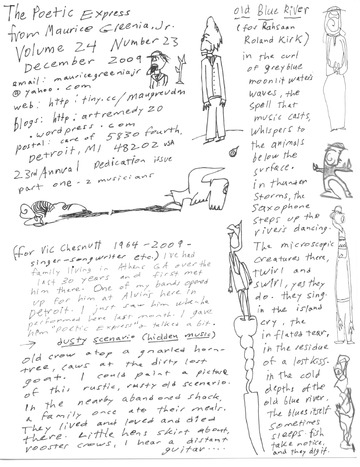 The Poetic Express
from Maurice Greenia, Jr.
Volume 24 Number 23
December 2009
email: mauricegreeniajr
@yahoo.com
web: http:tiny.cc/maugrevdm
blogs: http:artremedy20
.wordpress.com
postal: care of 5830 fourth.
Detroit, MI 48202 USA
23rd Annual Dedication issue
part one - 2 musicians
(for Vic Chesnutt 1964-2009-
singer-songwriter etc.) I've had
family living in Athens GA over the
last 30 years and first met
him there. One of my bands opened
up for him at Alvins here in
Detroit. I just saw him when he
performed here last month. I gave
him "Poetic Express"s & talked a bit.
dusty scenario (hidden music)
old crow atop a gnarled horn-
tree, caws at the dirty lost
goat. I could paint a picture
of this rustic, rusty old scenario.
In the nearby abandoned shack,
a family once ate their meals.
They lived and loved and died
there. Little hens skirt about,
rooster crows, I hear a distant
guitar....
old Blue River
(for Rahsaan
Roland Kirk)
in the curl
of greyblue
moonlit waters
waves, the
spell that
music casts,
whispers to
the animals
below the
surface.
in thunder
storms, the
saxophone
steps up the
rivers dancing.
The microscopic
creatures there,
twirl and
swirl, yes they
do. they sing
in the island
cry, the
inflated tear,
in the residue
of a lost kiss.
in the cold
depths of the
old blue river.
The blues itself
sometimes
sleeps. fish
take notice,
and they dig it.